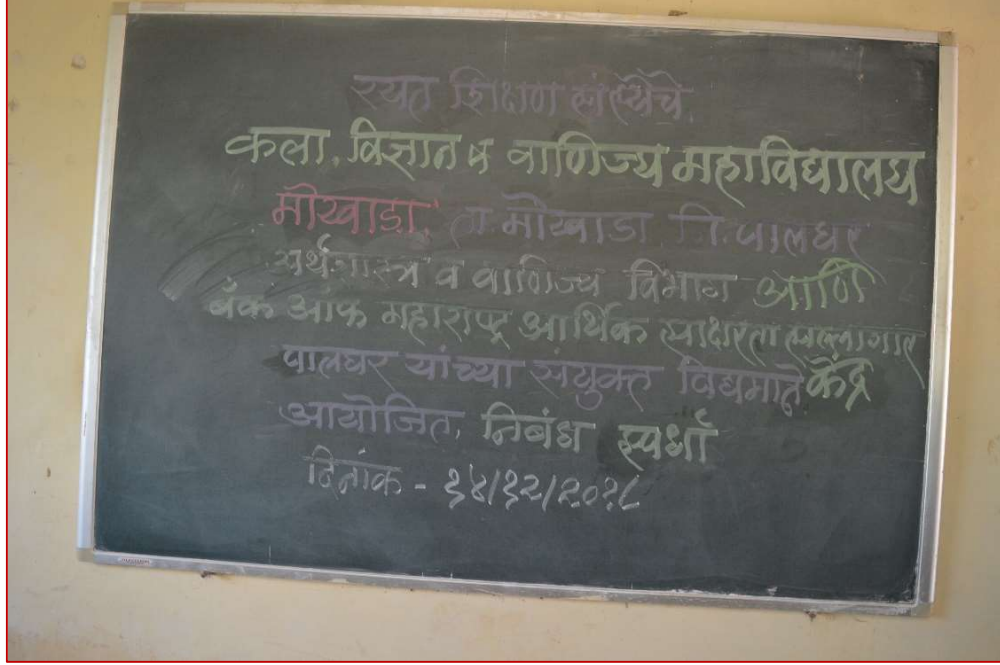 रयत शिक्षण संस्थेचे.
कला, विज्ञान व वाणिज्य महाविद्यालय
मोखाडा, ता. मोखाडा जि. पालघर
अर्थशास्त्र व वाणिज्य विभाग आणि
बँक ऑफ महाराष्ट्र आर्थिक साक्षरता सल्लागार
पालघर यांच्या संयुक्त विद्यमाने केंद्र
आयोजित, निबंध स्पर्धा
दिनांक - १४/१२/२०१८